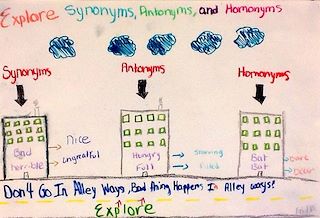 Explore Synonyms, Antonyms, and Homonyms
Synonyms Antonyms Homonyms
Bad Nice
horrible ungreatful
Hungry Starving
Full filled
Bat
Bat
Don't Go In Alley Ways, Bad thing Happens In Alley ways!
Explore